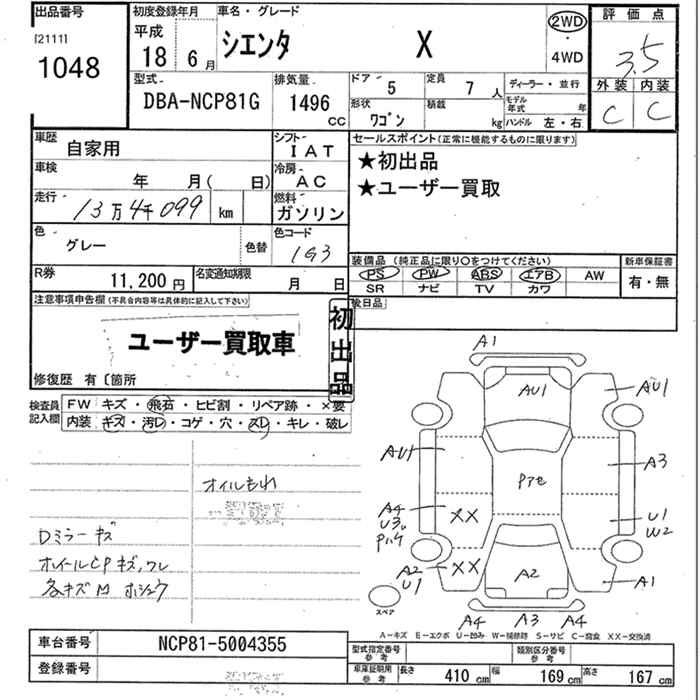 出品番号
[21111]
1048
初度登録年月
平成
18 6月
車名・グレード
シエンタ X
2WD
・
4WD
評価点
3.5
外装 内装
C C
型式
DBA-NCP81G
排気量
1496
CC
ドア 5
定員 7 人
ディーラー・並行
形状 ワゴン
積載 kg
モデル年式 年
ハンドル 左・右
車歴
自家用
シフト
IAT
車検
年 月( 日)
冷房
AC
走行
13万4千099 km
燃料
ガソリン
色
グレー
色替
色コード
1G3
R券
11,200円
名変通知期限
月 日
セールスポイント(正常に機能するものに限ります)
★初出品
★ユーザー買取
装備品(純正品に限り○をつけてください)
PS PW ABS エアB AW
SR ナビ TV カワ
新車保証書
有・無
後日品
注意事項申告欄(不具合内容等は具体的に記入して下さい)
ユーザー買取車
初出品
修復歴 有〔箇所
検査員記入欄
FW キズ・飛石・ヒビ割・リペア跡・×要
内装 キズ・汚レ・コゲ・穴・スレ・キレ・破レ
オイルもれ
Dミラーキズ
ホイールCPキズ、ワレ
各キズM ホシュウ
A1
AU1
AU1
AU1
Pre
A3
A4
U3
Pハゲ
XX
U1
W2
A2
U1
XX
A2
A1
スペア
A4 A3 A4
A-キズ E-エクボ U-凹み W-補修跡 S-サビ C-腐食 XX-交換済
車台番号
NCP81-5004355
登録番号
型式指定番号
参考
類別区分番号
参考
車庫証明用
参考
長さ 410 cm
幅 169 cm
高さ 167 cm